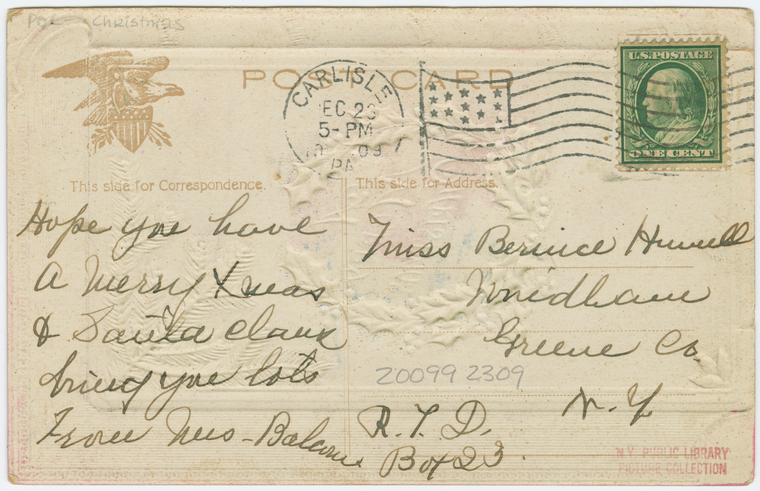 Christmas
POST CARD
U.S. POSTAGE
ONE CENT
CARLISLE
EC 23
5-PM
PA.
This side for Correspondence.
This side for Address.
Hope you have
A Merry Xmas
& Santa Claus
bring you lots
From Mrs-
Miss Bernice
Windham
Greene Co.
N.Y.
R.F.D.
Box 23.
20099 2309
N.Y. PUBLIC LIBRARY
PICTURE COLLECTION